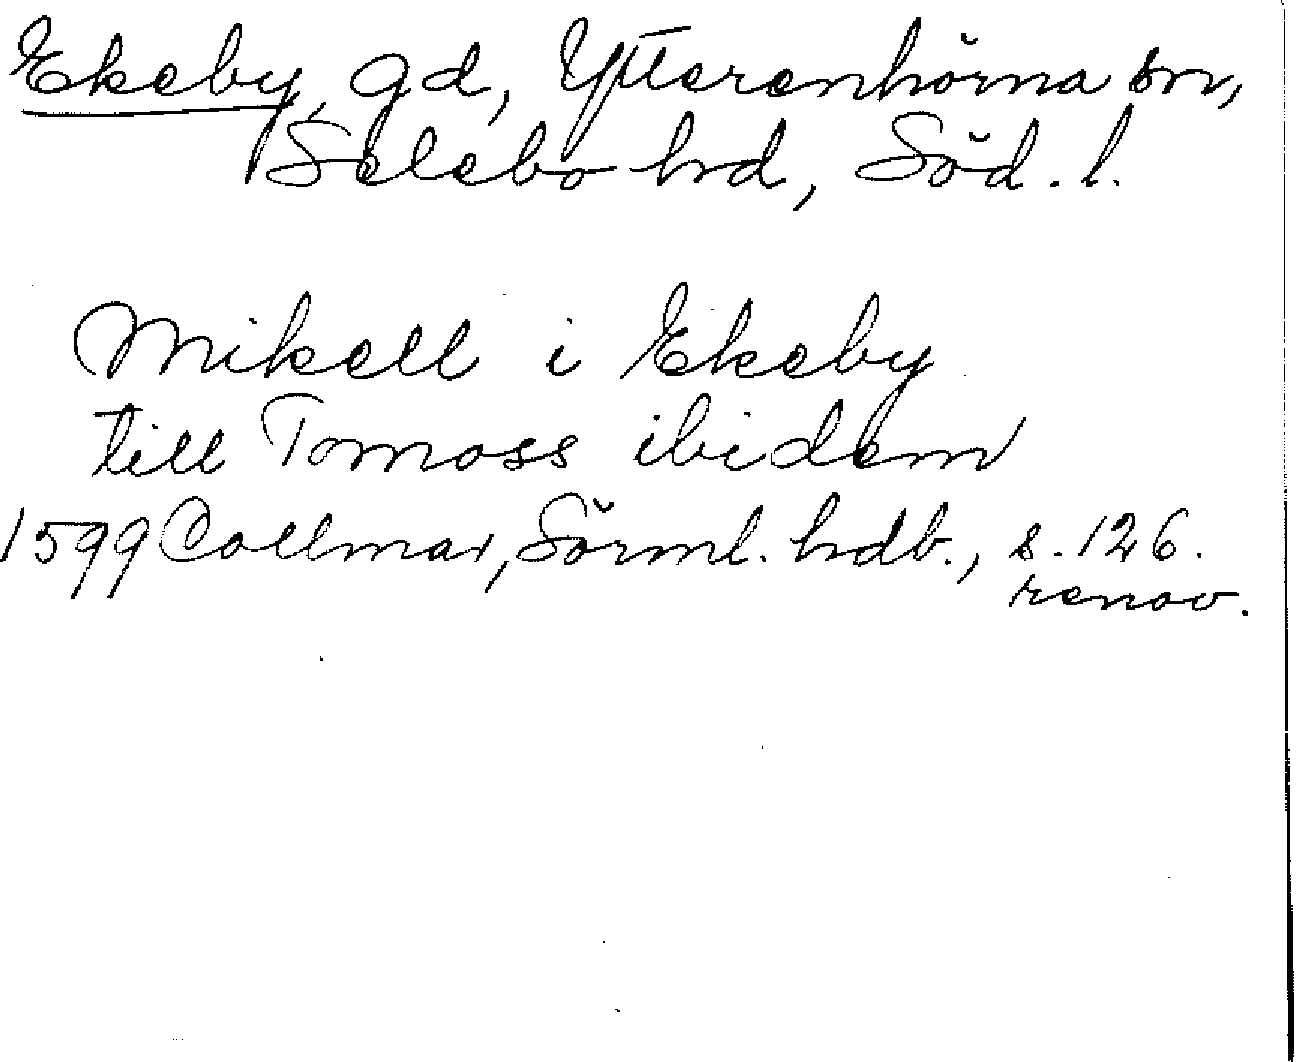 Ekeby, gd, Ytterenhörna sn,
Selebo hd, Söd. l.
Mikell i Ekeby
till Tomoss ibidem
1599 Collmar, Sörml. hdb., s. 126.
renov.